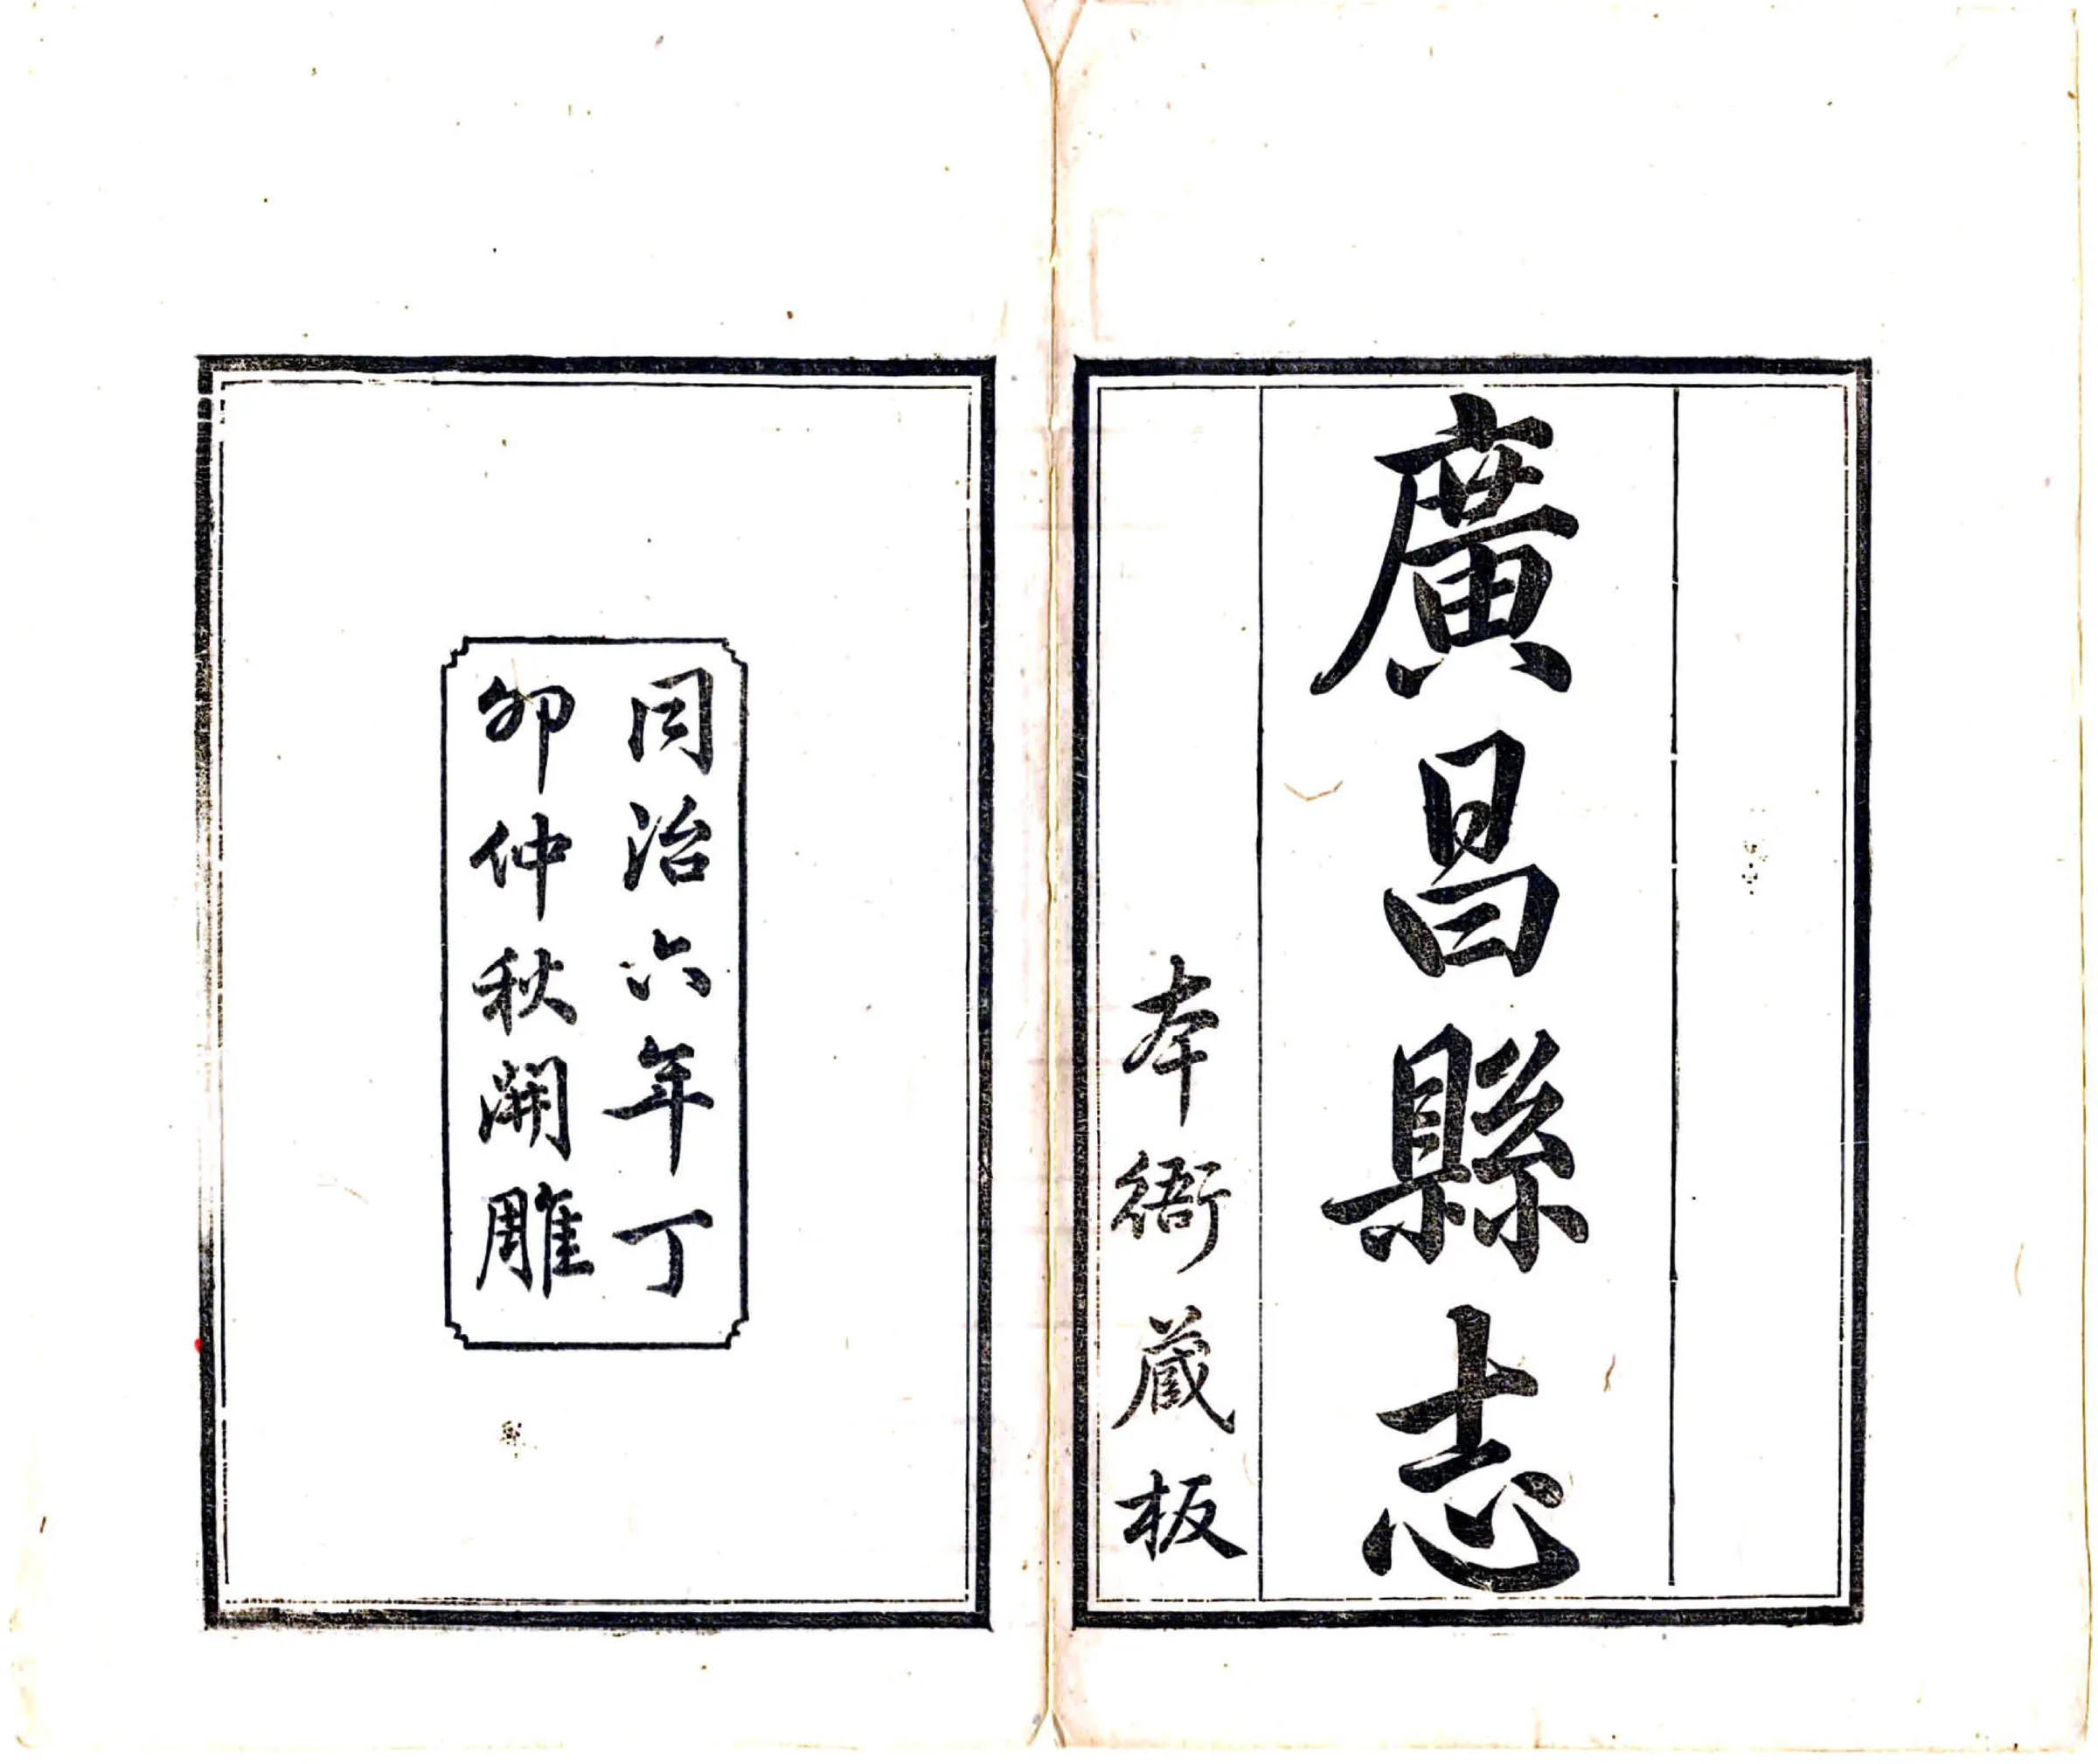 廣昌縣志
本衙藏板
同治六年丁
卯仲秋開雕